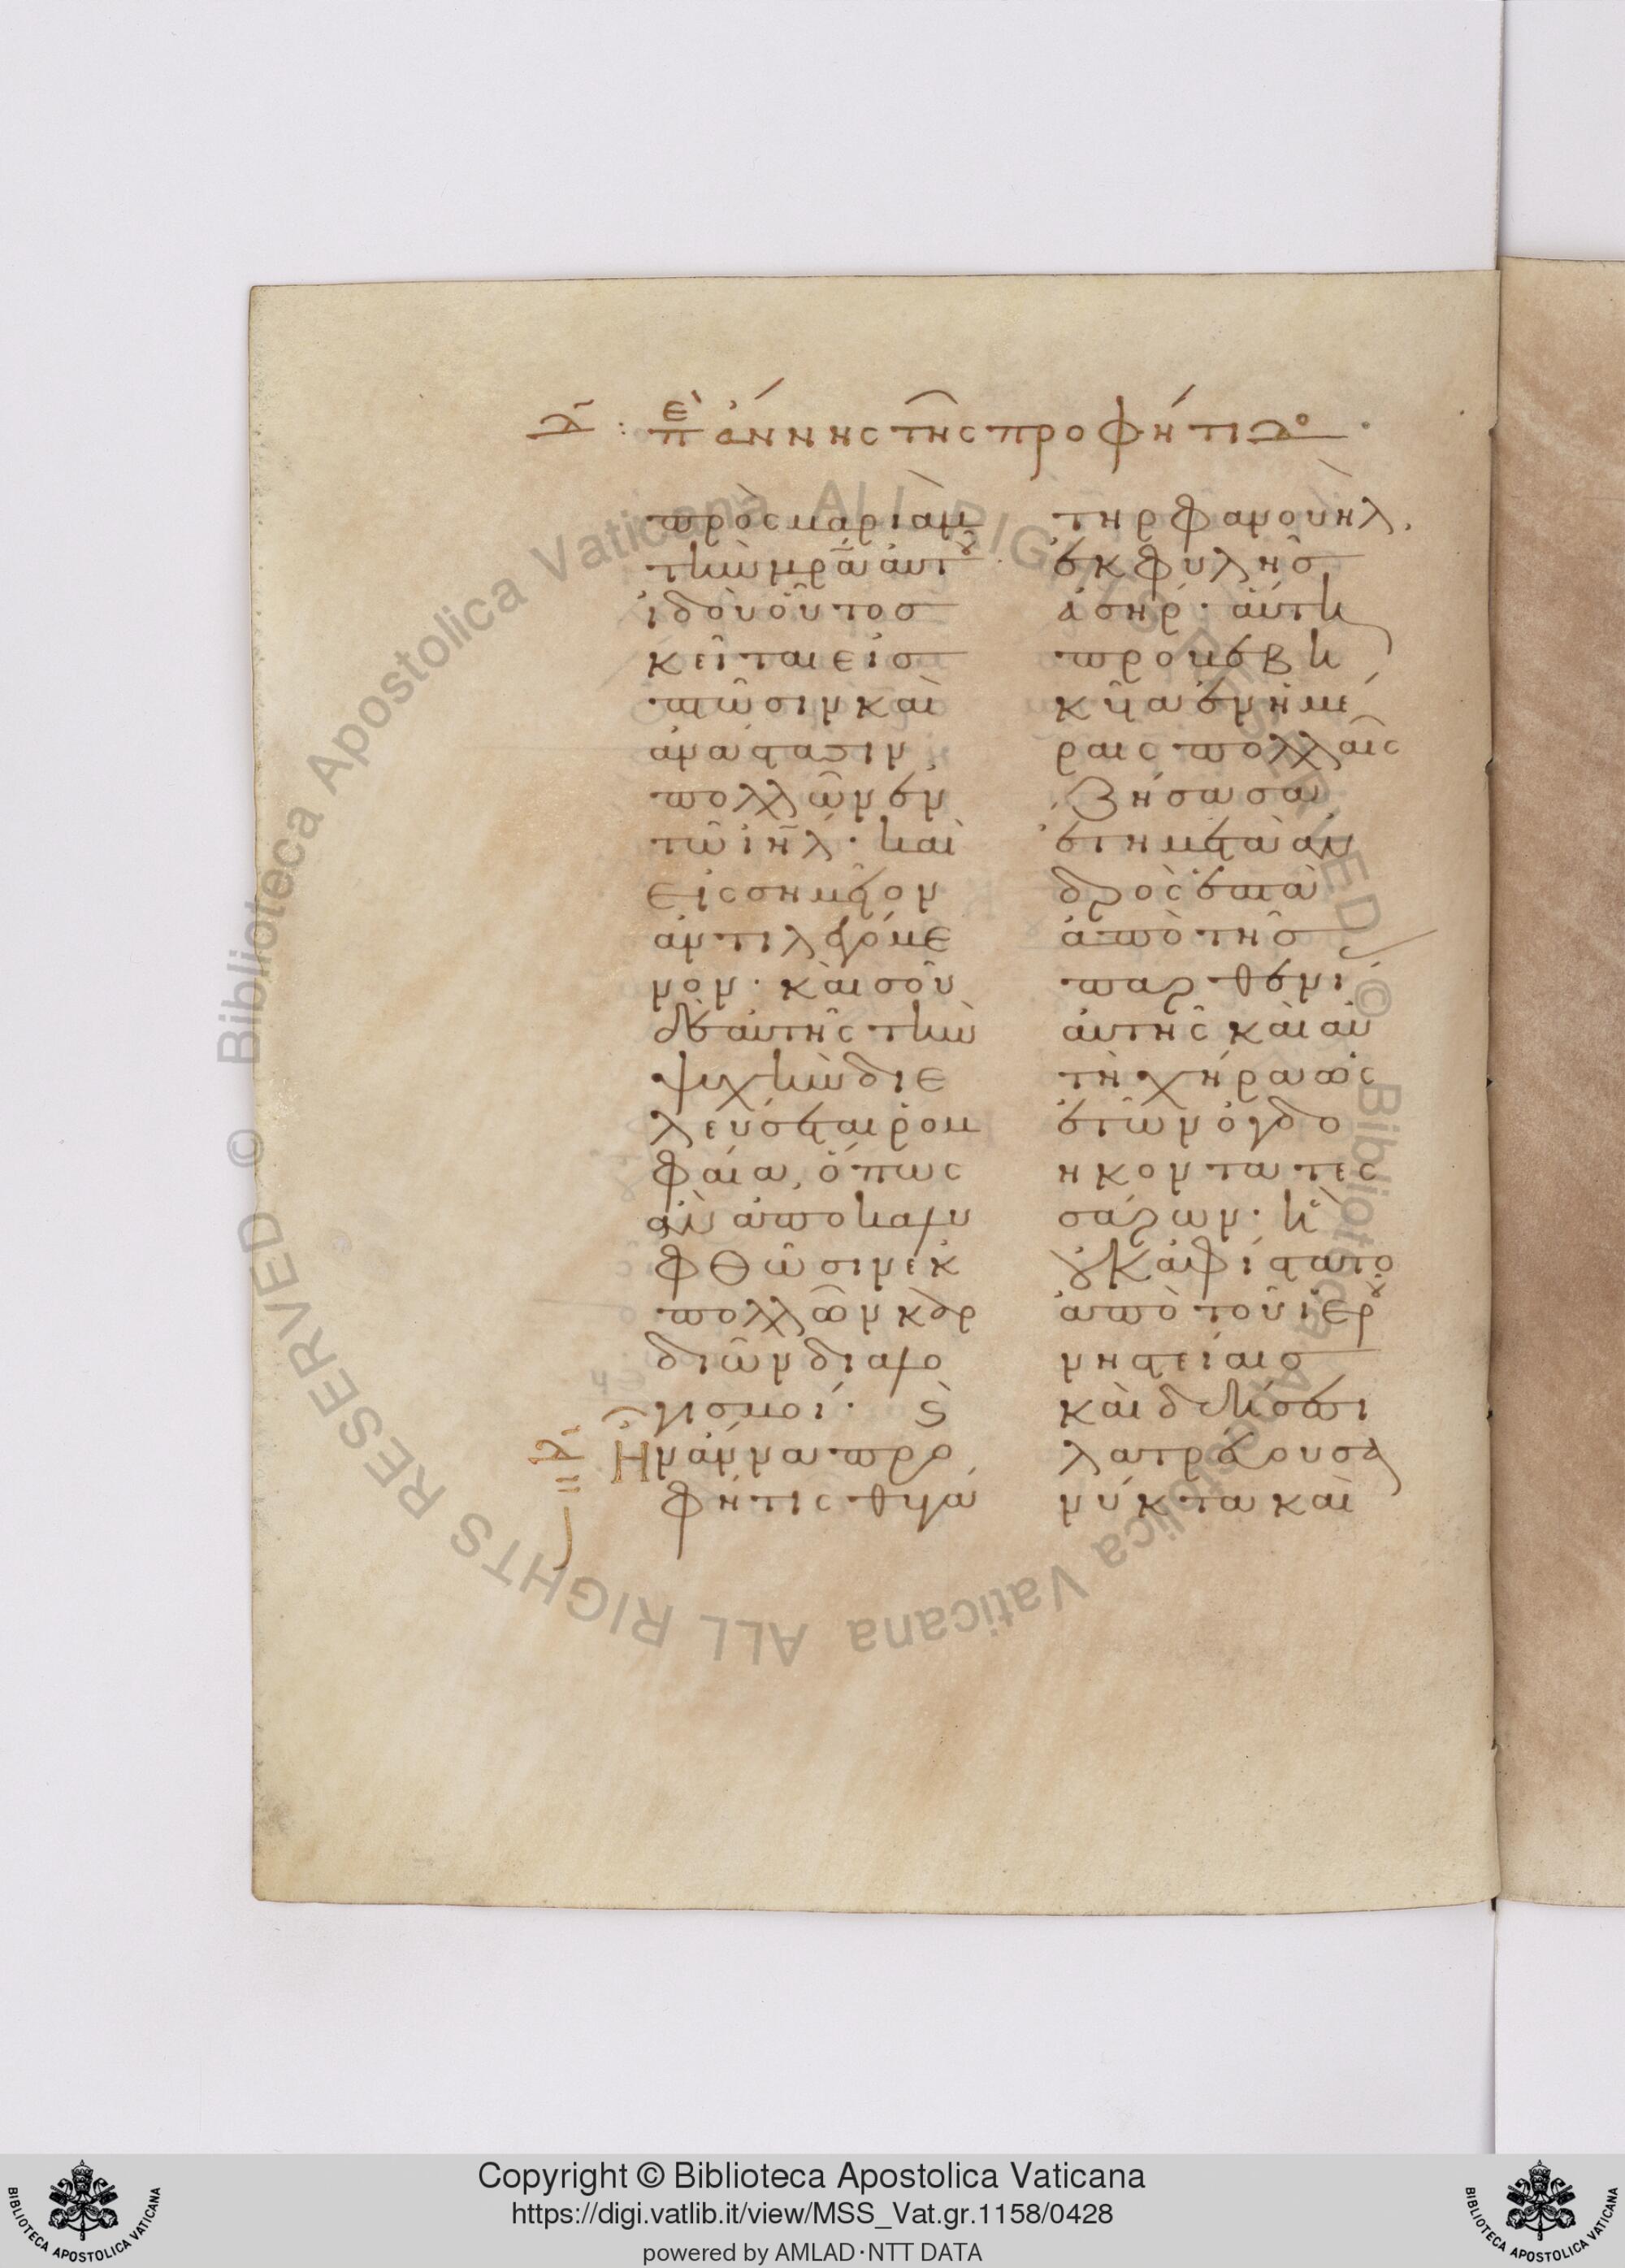 Δ̄ : ἐπ ἄννης τῆς προφήτιδο
πρὸς μαριὰμ
τὴν μρ̅α αὐτου
ἰδοὺ οὗτος
κεῖται εἰς
πτῶσιν καὶ
ἀνάστασιν
πολλῶν ἐν
τῶ ιη̅λ· καὶ
εἰς σημεῖον
ἀντιλεγόμε
νον· καὶ σοῦ
δὲ αὐτῆς τὴν
ψυχὴν διε
λεύσεται ῥομ
φαία, ὅπως
ἂν ἀποκαλυ
φθῶσιν ἐκ
πολλῶν καρ
διῶν διαλο
γισμοί· ς
Ἦν ἄννα προ
φῆτις θυγά
τηρ φανουὴλ,
ἐκ φυλῆς
ἀσήρ· αὕτη
προβεβη
κυῖα ἐν ἡμέ
ραις πολλαῖς
ζήσασα
ἔτη μετὰ ἀν
δρὸς ἑπτὰ
ἀπὸ τῆς
παρθενί
αὐτῆς καὶ αὐ
τὴ χήρα ὡς
ἐτῶν ὀγδο
ήκοντα τεσ
σάρων· ἣ
οὐκ ἀφίστατο
ἀπὸ τοῦ ἱεροῦ
νηστείαις
καὶ δεήσεσι
λατρεύουσα
νύκτα καὶ
Copyright © Biblioteca Apostolica Vaticana
https://digi.vatlib.it/view/MSS_Vat.gr.1158/0428
powered by AMLAD·NTT DATA
BIBLIOTECA APOSTOLICA VATICANA
BIBLIOTECA APOSTOLICA VATICANA
© Biblioteca Apostolica Vaticana ALL RIGHTS RESERVED © Biblioteca Apostolica Vaticana ALL RIGHTS RESERVED